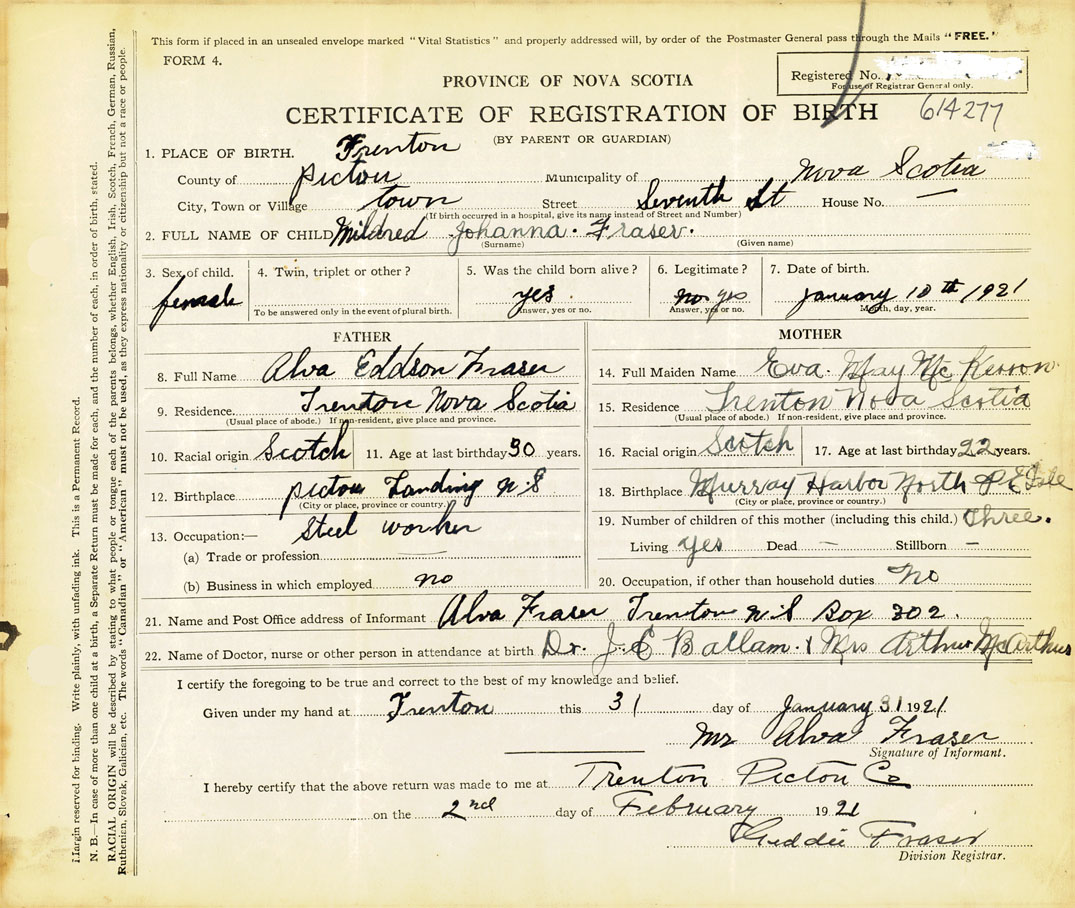 This form if placed in an unsealed envelope marked "Vital Statistics" and properly addressed will, by order of the Postmaster General pass through the Mails "FREE."
FORM 4.
Registered No.
For use of Registrar General only.
PROVINCE OF NOVA SCOTIA
CERTIFICATE OF REGISTRATION OF BIRTH
614277
(BY PARENT OR GUARDIAN)
1. PLACE OF BIRTH. Trenton
County of Pictou Municipality of Nova Scotia
City, Town or Village town Street Seventh St House No. —
(If birth occurred in a hospital, give its name instead of Street and Number)
2. FULL NAME OF CHILD Mildred Johanna. Fraser.
(Surname) (Given name)
3. Sex of child. 4. Twin, triplet or other? 5. Was the child born alive? 6. Legitimate? 7. Date of birth.
female yes. no yes January 10th 1921
To be answered only in the event of plural birth. Answer, yes or no. Answer, yes or no. Month, day, year.
FATHER MOTHER
8. Full Name Alva Eddson Fraser 14. Full Maiden Name Eva. May Mc Kerron
9. Residence. Trenton Nova Scotia 15. Residence Trenton Nova Scotia
(Usual place of abode.) If non-resident, give place and province. (Usual place of abode.) If non-resident, give place and province.
10. Racial origin Scotch 11. Age at last birthday 30 years. 16. Racial origin Scotch 17. Age at last birthday 22 years.
12. Birthplace Pictou Landing N.S 18. Birthplace Murray Harbor North P E Isle
(City or place, province or country.) (City or place, province or country.)
13. Occupation:— Steel worker 19. Number of children of this mother (including this child.) Three.
(a) Trade or profession — Living yes Dead — Stillborn —
(b) Business in which employed no 20. Occupation, if other than household duties No
21. Name and Post Office address of Informant Alva Fraser Trenton N.S Box 302.
22. Name of Doctor, nurse or other person in attendance at birth Dr. J. E Ballam. & Mrs Arthur McArthur
I certify the foregoing to be true and correct to the best of my knowledge and belief.
Given under my hand at Trenton this 31 day of January 31 1921.
Mr Alva Fraser
Signature of Informant.
I hereby certify that the above return was made to me at Trenton Picton Co
on the 2nd day of February 1921
Geddie Fraser
Division Registrar.
Margin reserved for binding. Write plainly, with unfading ink. This is a Permanent Record.
N. B.—In case of more than one child at a birth, a Separate Return must be made for each, and the number of each, in order of birth, stated.
RACIAL ORIGIN will be described by stating to what people or tongue each of the parents belongs, whether English, Irish, Scotch, French, German, Russian,
Ruthenian, Slovak, Galician, etc. The words "Canadian" or "American" must not be used, as they express nationality or citizenship but not a race or people.